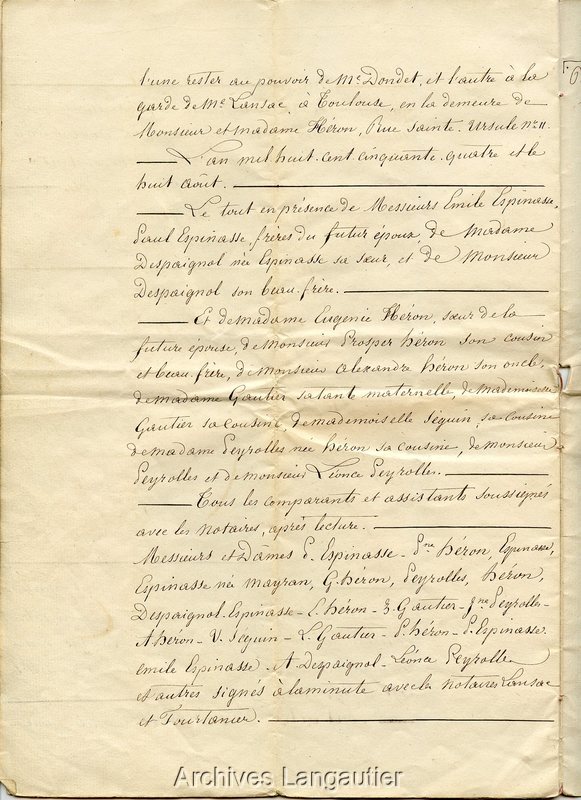 l'une rester au pouvoir de Me Dondet, et l'autre à la
garde de Me Lansac, à Toulouse, en la demeure de
Monsieur et madame Héron, Rue Sainte. Ursule No 11.
L'an mil huit. cent cinquante. quatre et le
huit août.
Le tout en présence de Messieurs Emile Espinasse,
Paul Espinasse, frères du futur époux, de Madame
Despaignol née Espinasse sa sœur, et de Monsieur
Despaignol son beau. frère.
Et de Madame Eugenie Héron, sœur de la
future épouse, de Monsieur Prosper héron son cousin
et beau. frère, de Monsieur alexandre héron son oncle,
de madame Gautier sa tante maternelle, de Mademoiselle
Gautier sa cousine, de mademoiselle Séguin, sa cousine
de madame Peyrolles née héron sa cousine, de monsieur
Peyrolles et de monsieur Léonce Peyrolles.
Tous les comparants et assistants soussignés
avec les notaires, après lecture.
Messieurs et Dames P. Espinasse - héron, Espinasse,
Espinasse née mayran, G. héron, Peyrolles, héron,
Despaignol. Espinasse - E. héron - Z. Gautier - Peyrolles -
A héron - V. Séguin - L. Gautier - P. héron - P. Espinasse.
emile Espinasse. A Despaignol - Léonce Peyrolles
et autres signés à la minute avec les notaires Lansac
et Fourtanier.
6
Archives Langautier